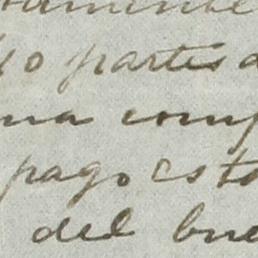 partes
una comp
pago esto
del bue